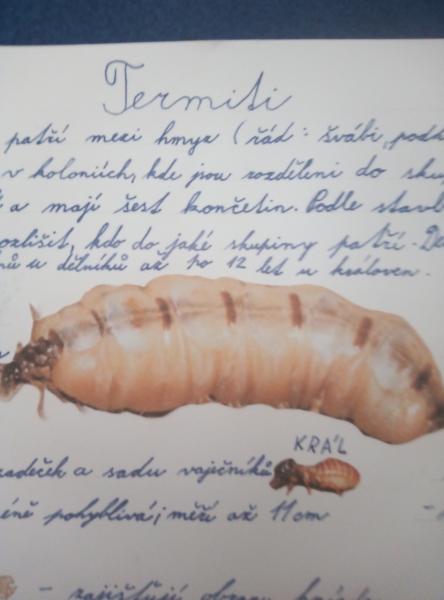 Termiti
patří mezi hmyz (řád: švábi, pod
v koloniích, kde jsou rozděleni do sku
a mají šest končetin. Podle stavb
rozlišit, kdo do jaké skupiny patří. Dé
ů u dělníků až po 12 let u královen.
KRÁL
zadeček a sadu vaječníků
éně pohyblivá; měří až 11cm
- zajišťují obranu